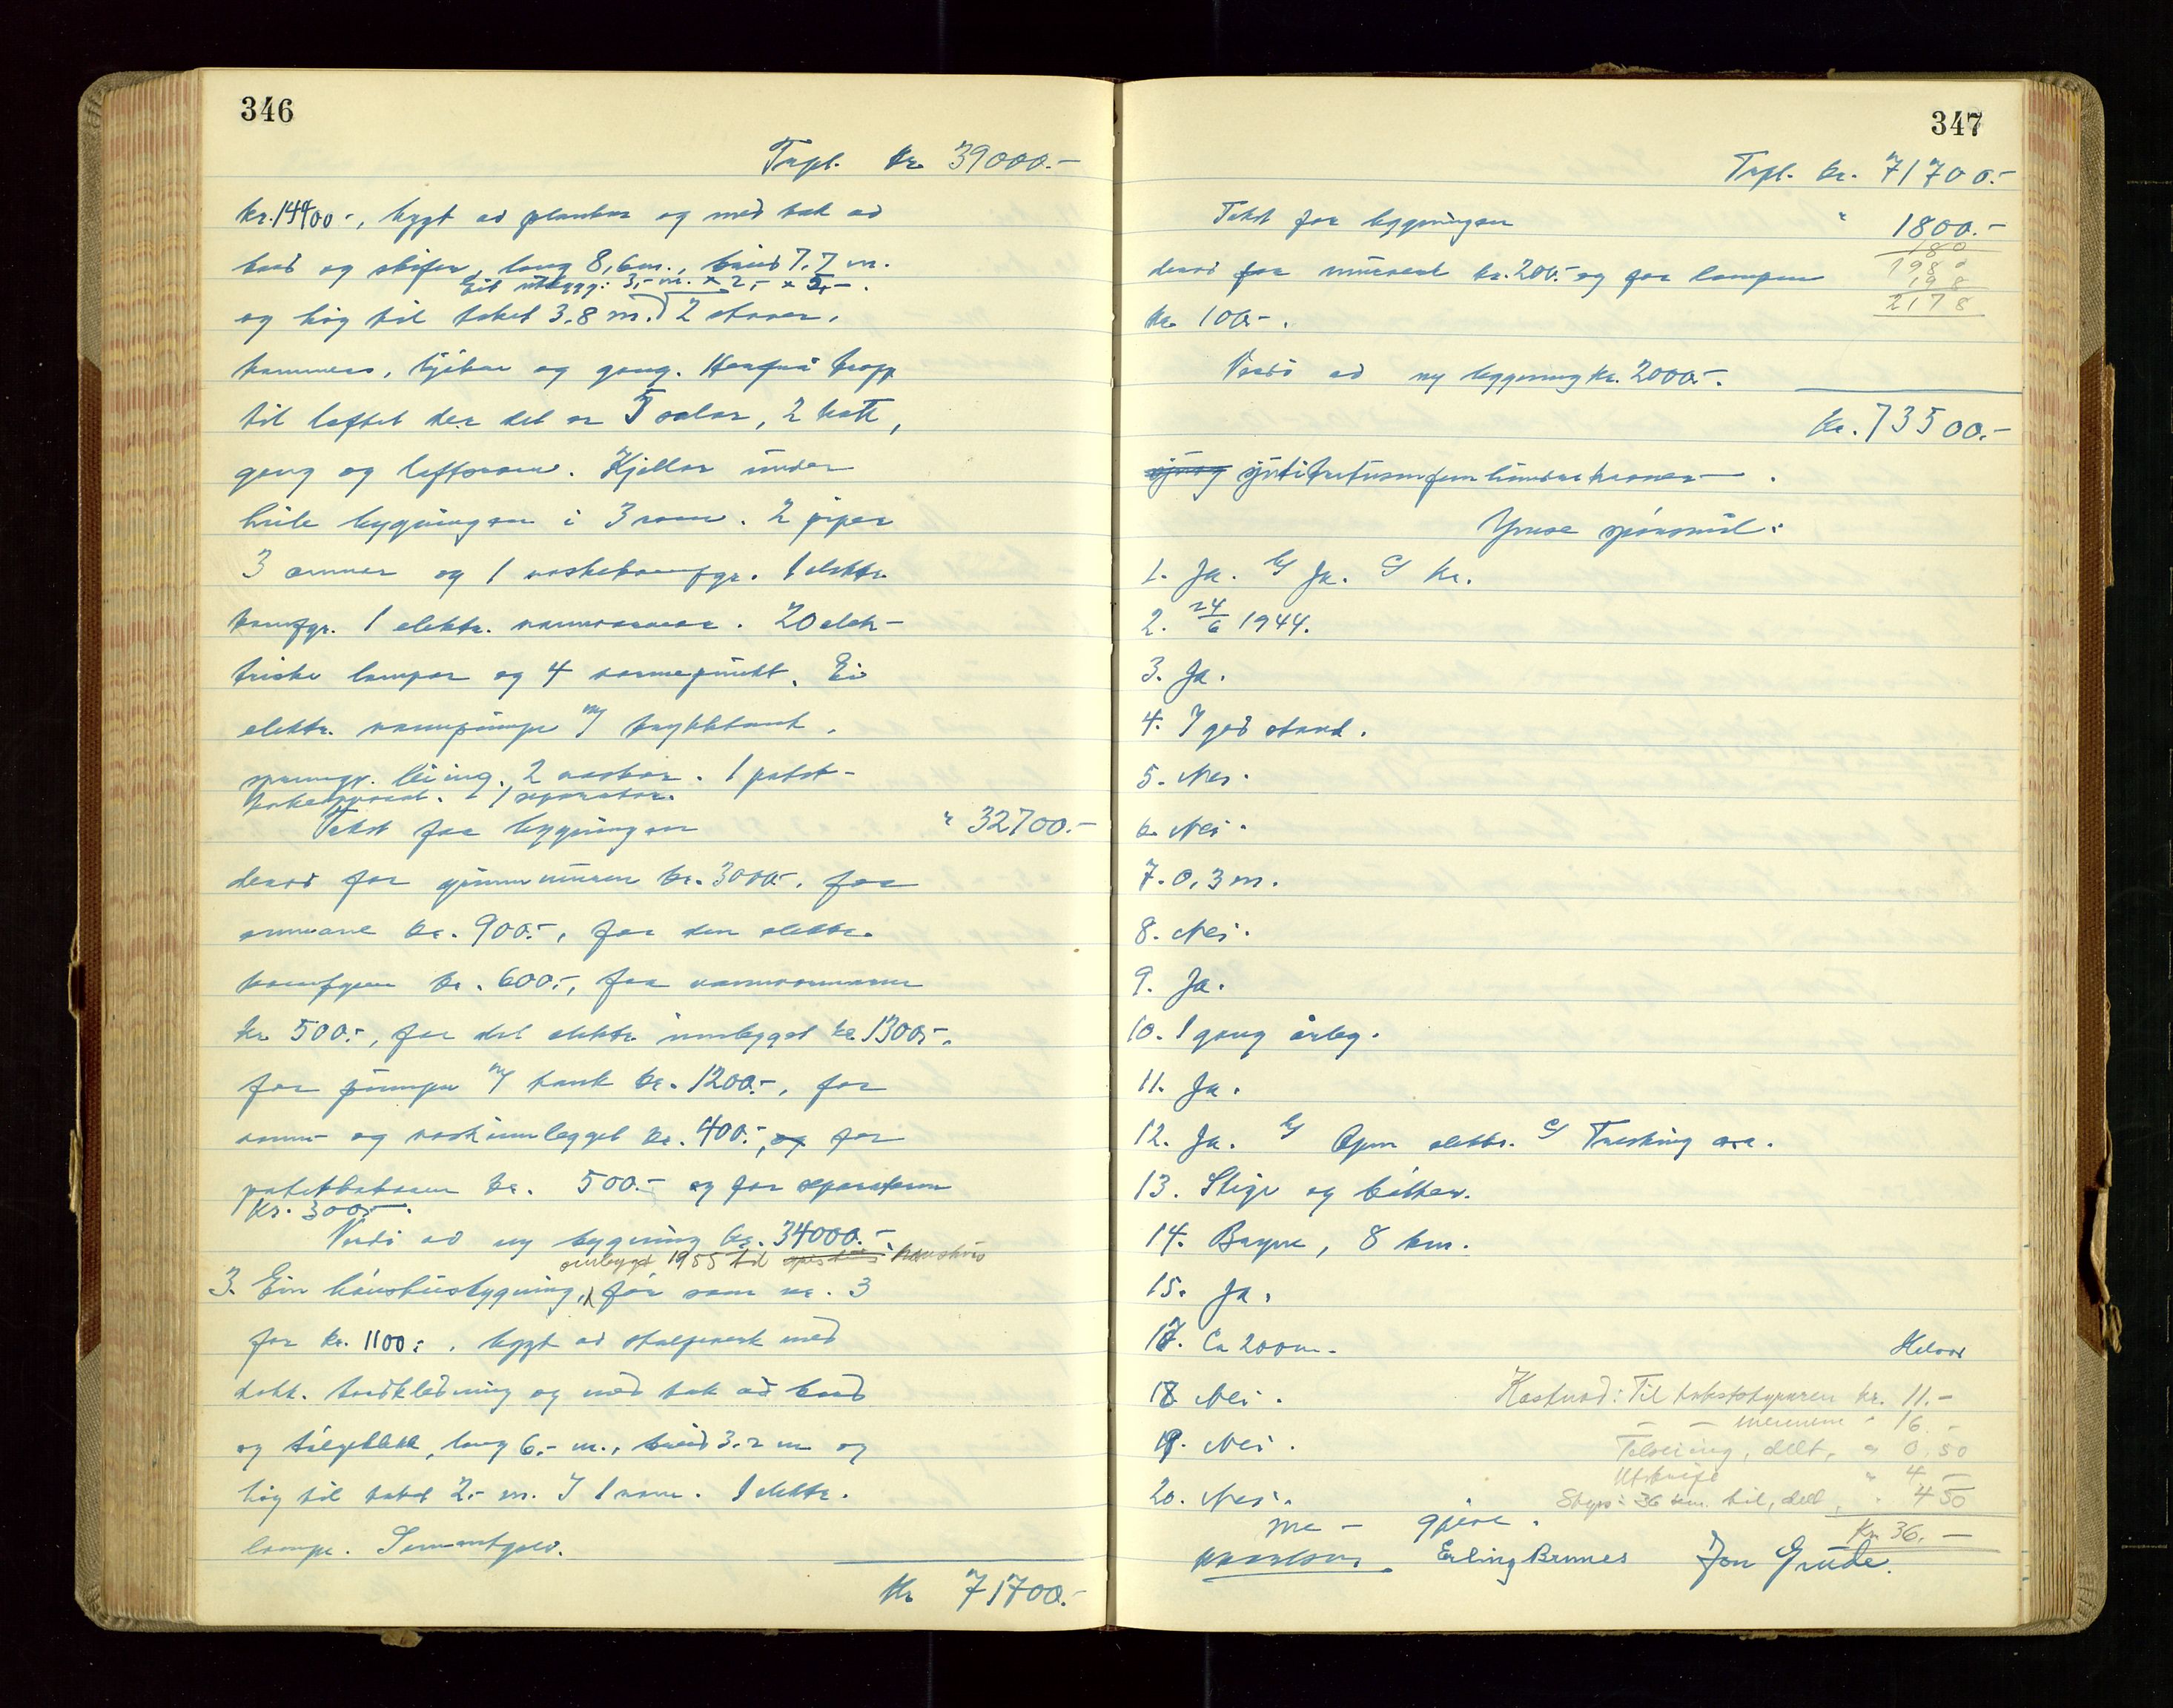 346
Trpt. kr. 39000.-
kr. 14400.-, bygt av plankar og med tak av
bord og skifer, lang 8,6 m., breid 7,7 m.
Eit utbygg: 3,- m. x 2,- x 5,-.
og høg til taket 3,8 m. 2 stover,
kammers, kjøken og gang. Herfrå tropp
til loftet der det er 5 solar, 2 kott,
gang og loftsrom. Kjellar under
heile bygningen i 3 rom. 2 piper
3 omnar og 1 vaskekomfyr. 1 elektr.
komfyr. 1 elektr. vannvarmar. 20 elek-
triske lampor og 4 varmepunkt. Ei
elektr. vannpumpe m/ trykktank,
leiing. 2 vaskar. 1 potet-
kokeapparat. 1 separator.
Takst for bygningen " 32700.-
derav for grunnmuren kr. 3000.-, for
omnane kr. 900.-, for den elektr.
komfyren kr. 600.-, for vannvarmaren
kr. 500.-, for det elektr. innlegget kr. 1300.-,
for pumpen m/ tank kr. 1200.-, for
vann- og vaskinnlegget kr. 400.-, og for
potetkokaren kr. 500.- og for separatoren
kr. 300.-.
Verdi av ny bygning kr. 34000.-
ombygt 1955 til hønsehus
3. Ein bygning, før som nr. 3
for kr. 1100.-, bygt av stolpeverk med
dobb. bordkledning og med tak av bord
og bølgeblikk, lang 6,- m., breid 3,2 m og
høg til taket 2,- m. I 1 rom. 1 elektr.
lampe. Sementgolv.
Kr. 71700.-
347
Trpt. kr. 71700.-
Takst for bygningen " 1800.-
180
derav for murverk kr. 200.- og for lampen
1980
198
kr. 100.-.
2178
Verdi av ny bygning kr. 2000.-.
Kr. 73500.-
sjutitretusenfemhundrekroner.
Ymse spørsmål:
1. Ja. b/ Ja. c/ Kr.
2. 24/6 1944.
3. Ja.
4. I god stand.
5. Nei.
6. Nei.
7. 0,3 m.
8. Nei.
9. Ja.
10. 1 gang årleg.
11. Ja.
12. Ja. b/ Open elektr. c/ Tresking o.a.
13. Stige og bøtter.
14. Bryne, 8 km.
15. Ja.
17. Ca 200 m.
18. Nei.
Kostnad: Til takststyraren kr. 11.-
- - mennene " 16.-
19. Nei.
delt, " 0.50
Utskrift " 4 -
20. Nei.
Skyss: 36 km. bil, delt, " 4 50
Kr. 36.-
Erling Brunes Jon Grude.